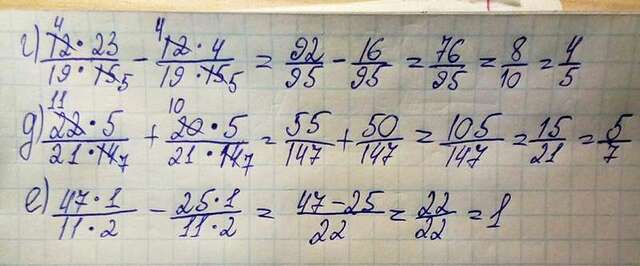 г) (12⁴ · 23)/(19 · 15₅) − (12⁴ · 4)/(19 · 15₅) = 92/95 − 16/95 = 76/95 = 8/10 = 4/5
д) (22¹¹ · 5)/(21 · 14₇) + (20¹⁰ · 5)/(21 · 14₇) = 55/147 + 50/147 = 105/147 = 15/21 = 5/7
е) (47 · 1)/(11 · 2) − (25 · 1)/(11 · 2) = (47 − 25)/22 = 22/22 = 1